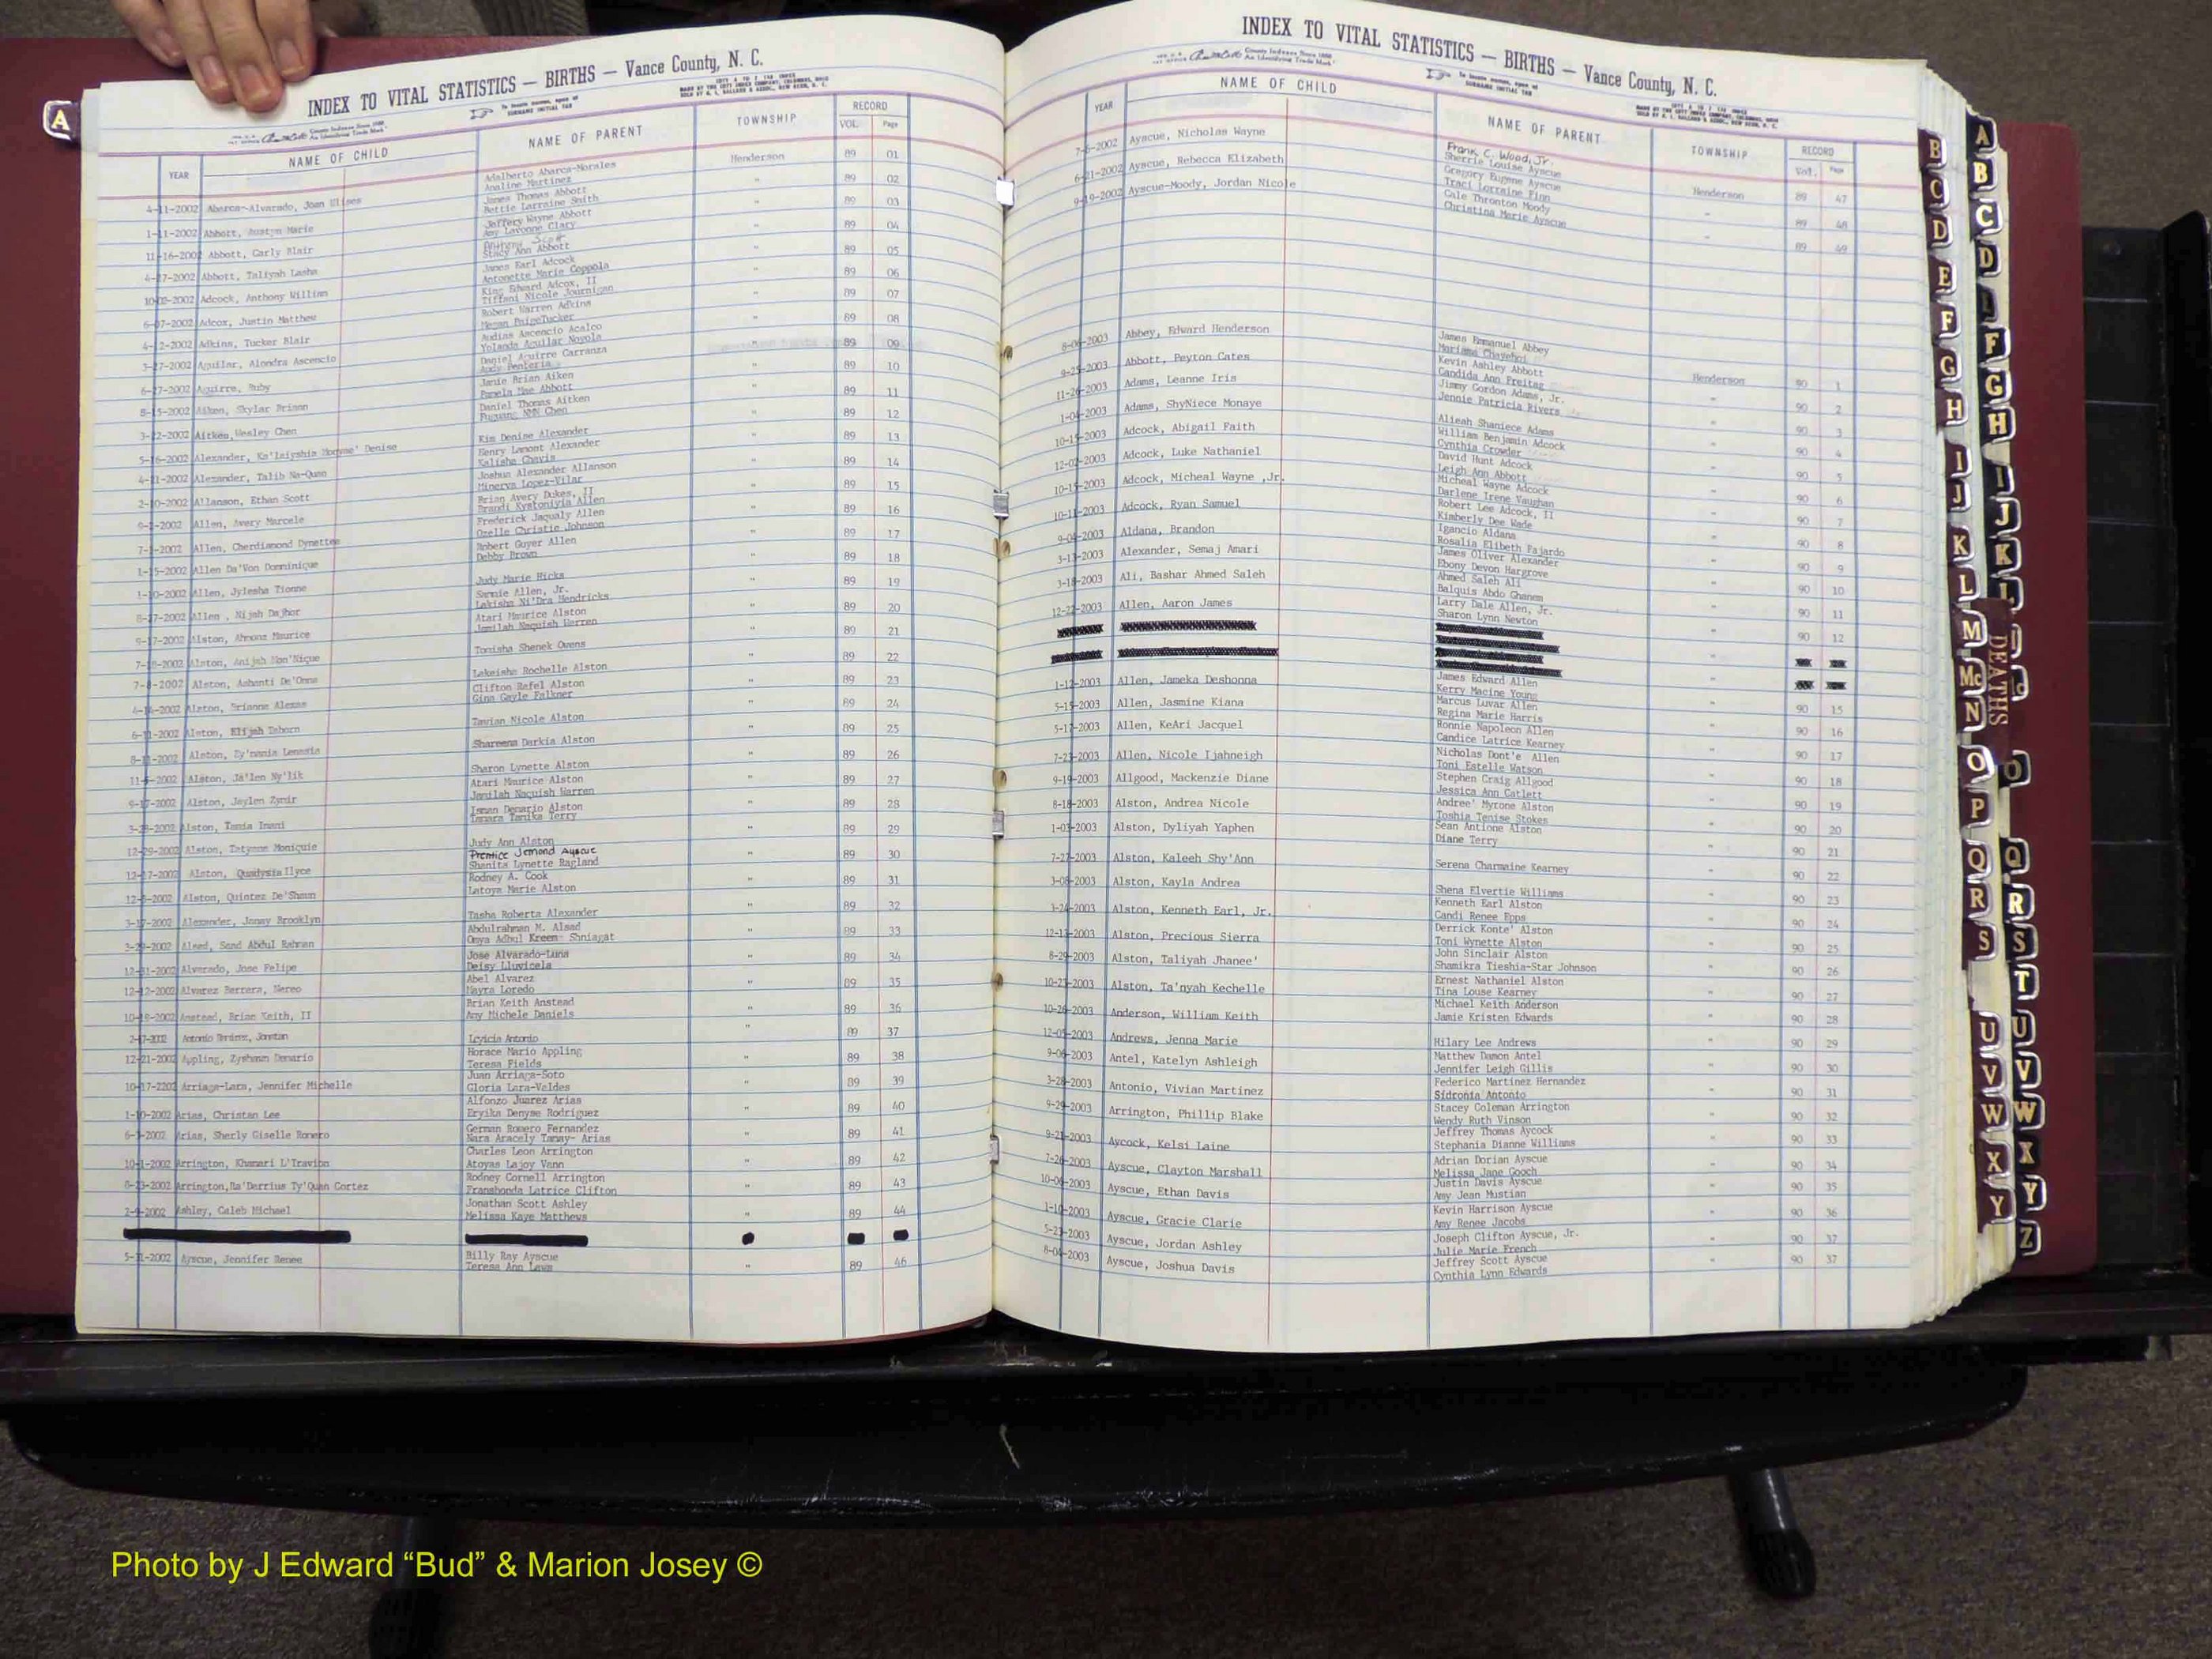 INDEX TO VITAL STATISTICS — BIRTHS — Vance County, N. C.
YEAR NAME OF CHILD NAME OF PARENT TOWNSHIP RECORD VOL. Page
4-11-2002 Abarca-Alvarado, Joan Ulises Adalberto Abarca-Morales Henderson 89 01
Analine Martinez
1-11-2002 Abbott, Austyn Marie James Thomas Abbott " 89 02
Bettie Lorraine Smith
11-16-2002 Abbott, Carly Blair Jeffery Wayne Abbott " 89 03
Amy Lavonne Clary
4-27-2002 Abbott, Taliyah Lasha Anthony Scott " 89 04
Stacy Ann Abbott
10-02-2002 Adcock, Anthony William James Earl Adcock " 89 05
Antonette Marie Coppola
6-07-2002 Adcox, Justin Matthew King Edward Adcox, II " 89 06
Tiffani Nicole Journigan
4-12-2002 Adkins, Tucker Blair Robert Warren Adkins " 89 07
Megan PaigeTucker
3-27-2002 Aguilar, Alondra Ascencio Audias Ascencio Acalco " 89 08
Yolanda Aguilar Noyola
6-27-2002 Aguirre, Ruby Daniel Aguirre Carranza " 89 09
Audy Renteria
8-15-2002 Aiken, Skylar Brison Janie Brian Aiken " 89 10
Pamela Mae Abbott
3-22-2002 Aitken,Wesley Chen Daniel Thomas Aitken " 89 11
NMN Chen
5-16-2002 Alexander, Denise Kim Denise Alexander " 89 12
4-11-2002 Alexander, Talib Na-Quan Henry Lamont Alexander " 89 13
Kalisha Chavis
2-10-2002 Allanson, Ethan Scott Joshua Alexander Allanson " 89 14
Minerva Lopez-Vilar
Allen, Avery Marcele Brian Avery Dukes, II " 89 15
Brandi Allen
Allen, Cherdiamond Dynettee Frederick Jaqualy Allen " 89 16
Ozelle Christie Johnson
1-15-2002 Allen Da'Von Domminique Robert Guyer Allen " 89 17
Debby Brown
1-10-2002 Allen, Jylesha Tionne Judy Marie Hicks " 89 18
8-27-2002 Allen , Nijah Dajhor Sammie Allen, Jr. " 89 19
Lakisha Ni'Dra Hendricks
9-17-2002 Alston, Ahmonz Maurice Atari Maurice Alston " 89 20
Jamilah Naquish Warren
Alston, Anijah Mon'Nique Tomisha Shenek Owens " 89 21
7-8-2002 Alston, Ashanti De'Onna Lakeisha Rochelle Alston " 89 22
Alston, Brianna Alexas Clifton Rafel Alston " 89 23
Gina Gayle Falkner
6-11-2002 Alston, Elijah Tahorn Tavian Nicole Alston " 89 24
8-11-2002 Alston, Zy'nasia Lenasia Shareena Darkia Alston " 89 25
Alston, Ja'len Ny'lik Sharon Lynette Alston " 89 26
9-17-2002 Alston, Jaylen Zymir Atari Maurice Alston " 89 27
Jamilah Naquish Warren
Alston, Tamia Imani Demario Alston " 89 28
Tamara Tanika Terry
12-29-2002 Alston, Tatyanna Moniquie Judy Ann Alston " 89 29
12-17-2002 Alston, Quadysia Ilyce Prentice Jemond Ayscue " 89 30
Shanita Lynette Ragland
Alston, Quintez De'Shaun Rodney A. Cook " 89 31
Latoya Marie Alston
3-17-2002 Alexander, Jonay Brooklyn Tasha Roberta Alexander " 89 32
Alsad, Saad Abdul Rahman Abdulrahman M. Alsad " 89 33
Omya Adbul Kreem- Shniagat
12-31-2002 Alvarado, Jose Felipe Jose Alvarado-Luna " 89 34
Deisy Lluvicela
12-12-2002 Alvarez Berrera, Nereo Abel Alvarez " 89 35
Mayra Loredo
10-18-2002 Anstead, Brian Keith, II Brian Keith Anstead " 89 36
Amy Michele Daniels
2-17-2002 Antonio Ramirez, Jonatan Leyicia Antonio " 89 37
12-21-2002 Appling, Zyshawn Demario Horace Mario Appling " 89 38
Teresa Fields
10-17-2202 Arriaga-Lara, Jennifer Michelle Juan Arriaga-Soto " 89 39
Gloria Lara-Valdes
1-10-2002 Arias, Christan Lee Alfonzo Juarez Arias " 89 40
Eryika Denyse Rodriguez
Arias, Sherly Giselle Romero German Romero Fernandez " 89 41
Nara Aracely Tamay- Arias
10-1-2002 Arrington, Khamari L'Travion Charles Leon Arrington " 89 42
Atoyas Lajoy Venn
8-23-2002 Arrington,Ra'Darrius Ty'Quan Cortez Rodney Cornell Arrington " 89 43
Franshonda Latrice Clifton
Ashley, Caleb Michael Jonathan Scott Ashley " 89 44
Melissa Kaye Matthews
5-31-2002 Ayscue, Jennifer Renee Billy Ray Ayscue " 89 46
Teresa Ann Laws
INDEX TO VITAL STATISTICS — BIRTHS — Vance County, N. C.
YEAR NAME OF CHILD NAME OF PARENT TOWNSHIP RECORD Vol. Page
7-6-2002 Ayscue, Nicholas Wayne Frank C. Wood, Jr. Henderson 89 47
Sherrie Louise Ayscue
6-21-2002 Ayscue, Rebecca Elizabeth Gregory Eugene Ayscue " 89 48
Traci Lorraine Finn
9-19-2002 Ayscue-Moody, Jordan Nicole Gale Thronton Moody " 89 49
Christina Marie Ayscue
8-06-2003 Abbey, Edward Henderson James Emmanuel Abbey Henderson 90 1
Mariama Chayehoi
9-25-2003 Abbott, Peyton Cates Kevin Ashley Abbott " 90 2
Candida Ann Freitag
11-26-2003 Adams, Leanne Iris Jimmy Gordon Adams, Jr. " 90 3
Jennie Patricia Rivers
1-04-2003 Adams, ShyNiece Monaye Alieah Shaniece Adams " 90 4
10-15-2003 Adcock, Abigail Faith William Benjamin Adcock " 90 5
Cynthia Crowder
12-02-2003 Adcock, Luke Nathaniel David Hunt Adcock " 90 6
Leigh Ann Abbott
10-15-2003 Adcock, Micheal Wayne ,Jr. Micheal Wayne Adcock " 90 7
Darlene Irene Vaughan
10-11-2003 Adcock, Ryan Samuel Robert Lee Adcock, II " 90 8
Kimberly Dee Wade
9-04-2003 Aldana, Brandon Igancio Aldana " 90 9
Rosalia Elibeth Fajardo
3-13-2003 Alexander, Semaj Amari James Oliver Alexander " 90 10
Ebony Devon Hargrove
3-18-2003 Ali, Bashar Ahmed Saleh Ahmed Saleh Ali " 90 11
Balquis Abdo Ghanem
12-22-2003 Allen, Aaron James Larry Dale Allen, Jr. " 90 12
Sharon Lynn Newton
1-12-2003 Allen, Jameka Deshonna James Edward Allen " 90 15
Kerry Macine Young
5-15-2003 Allen, Jasmine Kiana Marcus Luvar Allen " 90 16
Regina Marie Harris
5-17-2003 Allen, KeAri Jacquel Ronnie Napoleon Allen " 90 17
Candice Latrice Kearney
7-23-2003 Allen, Nicole Ijahneigh Nicholas Dont'e Allen " 90 18
Toni Estelle Watson
9-19-2003 Allgood, Mackenzie Diane Stephen Craig Allgood " 90 19
Jessica Ann Catlett
8-18-2003 Alston, Andrea Nicole Andree' Myrone Alston " 90 20
Toshia Tenise Stokes
1-03-2003 Alston, Dyliyah Yaphen Sean Antione Alston " 90 21
Diane Terry
7-27-2003 Alston, Kaleeh Shy'Ann Serena Charmaine Kearney " 90 22
3-08-2003 Alston, Kayla Andrea Shena Elvertie Williams " 90 23
3-24-2003 Alston, Kenneth Earl, Jr. Kenneth Earl Alston " 90 24
Candi Renee Epps
12-12-2003 Alston, Precious Sierra Derrick Konte' Alston " 90 25
Toni Wynette Alston
8-29-2003 Alston, Taliyah Jhanee' John Sinclair Alston " 90 26
Shamikra Tieshia-Star Johnson
10-23-2003 Alston, Ta'nyah Kechelle Ernest Nathaniel Alston " 90 27
Tina Louse Kearney
10-26-2003 Anderson, William Keith Michael Keith Anderson " 90 28
Jamie Kristen Edwards
12-05-2003 Andrews, Jenna Marie Hilary Lee Andrews " 90 29
9-06-2003 Antel, Katelyn Ashleigh Matthew Damon Antel " 90 30
Jennifer Leigh Gillis
3-28-2003 Antonio, Vivian Martinez Federico Martinez Hernandez " 90 31
Sidronia Antonio
9-29-2003 Arrington, Phillip Blake Stacey Coleman Arrington " 90 32
Wendy Ruth Vinson
9-21-2003 Aycock, Kelsi Laine Jeffrey Thomas Aycock " 90 33
Stephania Dianne Williams
7-26-2003 Ayscue, Clayton Marshall Adrian Dorian Ayscue " 90 34
Melissa Jane Gooch
10-06-2003 Ayscue, Ethan Davis Justin Davis Ayscue " 90 35
Amy Jean Mustian
1-10-2003 Ayscue, Gracie Clarie Kevin Harrison Ayscue " 90 36
Amy Renee Jacobs
5-23-2003 Ayscue, Jordan Ashley Joseph Clifton Ayscue, Jr. " 90 37
Julie Marie French
8-04-2003 Ayscue, Joshua Davis Jeffrey Scott Ayscue " 90 37
Cynthia Lynn Edwards
A
B
C
D
E
F
G
H
I
J
K
L
M
Mc
N
O
P
Q
R
S
U
V
W
X
Y
A
B
C
D
F
G
H
I
J
K
L
DEATHS
O
Q
R
S
T
U
V
W
X
Y
Z
Photo by J Edward “Bud” & Marion Josey ©